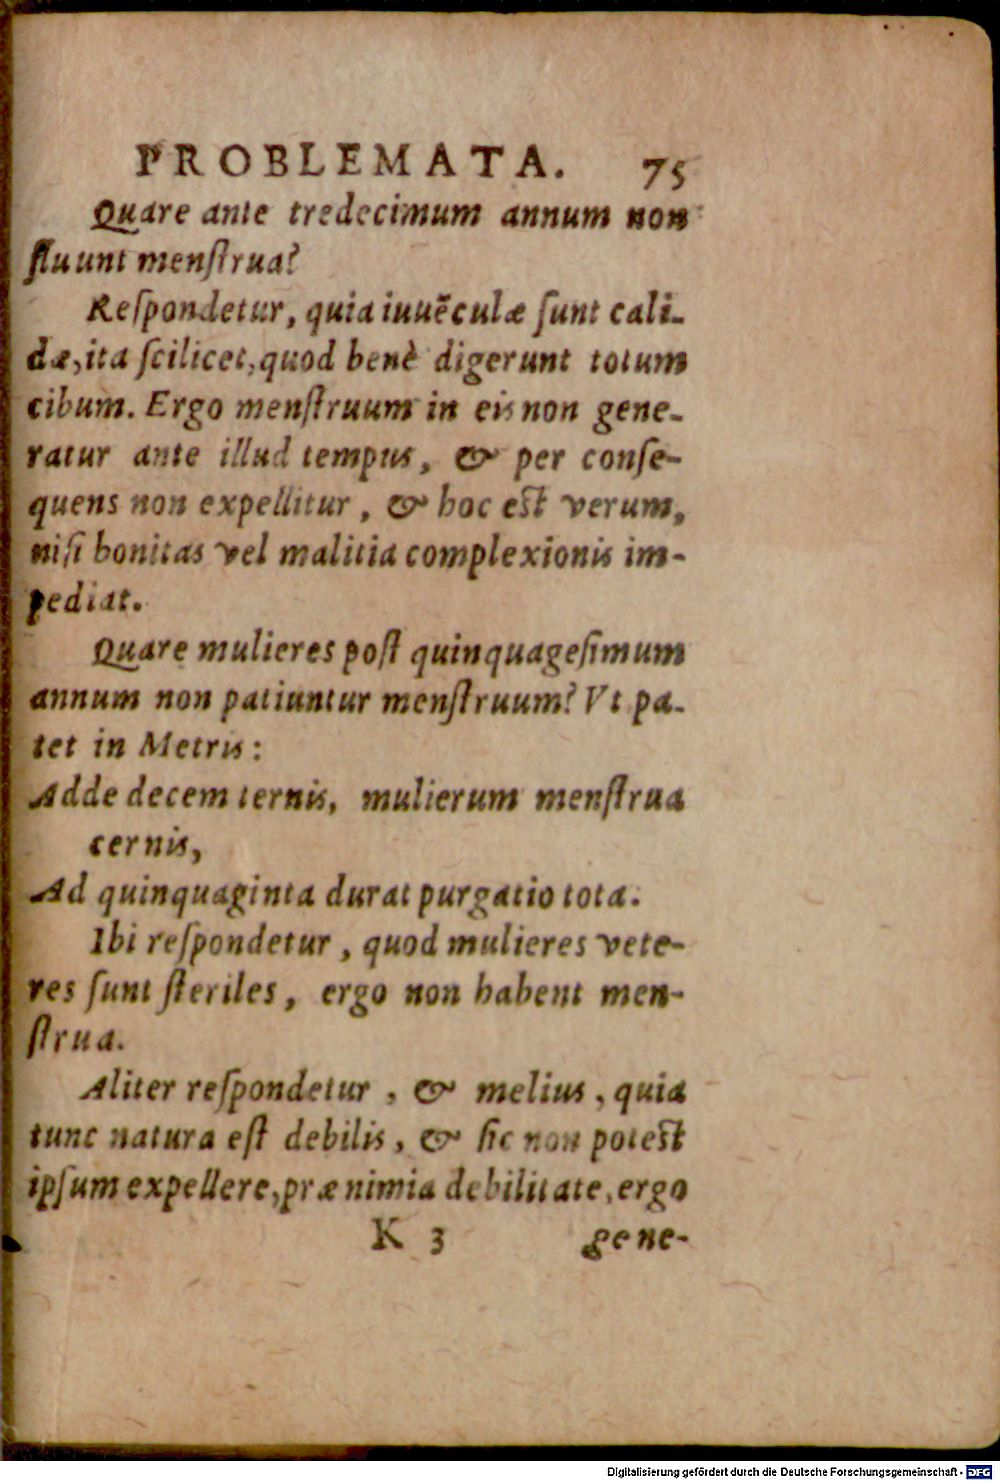 PROBLEMATA. 75
Quare ante tredecimum annum non
fluunt menſtrua?
Reſpondetur, quia iuuẽculæ ſunt cali-
dæ, ita ſcilicet, quod benè digerunt totum
cibum. Ergo menſtruum in eis non gene-
ratur ante illud tempus, & per conſe-
quens non expellitur, & hoc eſt verum,
niſi bonitas vel malitia complexionis im-
pediat.
Quare mulieres poſt quinquageſimum
annum non patiuntur menſtruum? Vt pa-
tet in Metris:
Adde decem ternis, mulierum menſtrua
cernis,
Ad quinquaginta durat purgatio tota.
Ibi reſpondetur, quod mulieres vete-
res ſunt ſteriles, ergo non habent men-
ſtrua.
Aliter reſpondetur, & melius, quia
tunc natura eſt debilis, & ſic non poteſt
ipſum expellere, præ nimia debilitate, ergo
K 3 gene-
Digitalisierung gefördert durch die Deutsche Forschungsgemeinschaft - DFG